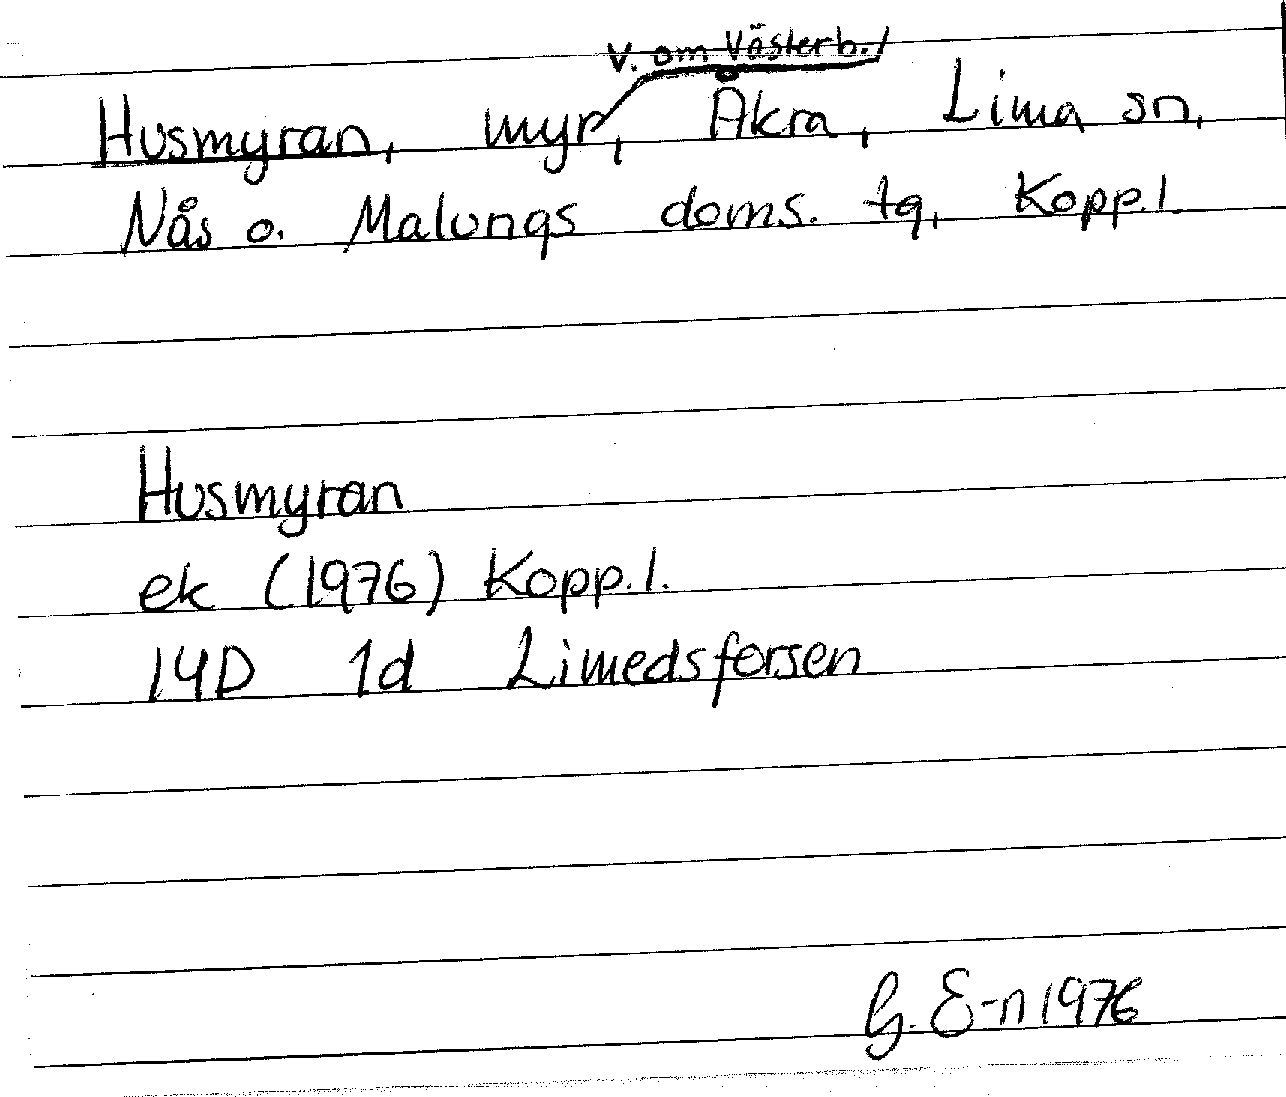 V. om Västerb./
Husmyran, myr, Åkra, Lima sn,
Nås o. Malungs doms. tg, Kopp.l.
Husmyran
ek (1976) Kopp.l.
14D 1d Limedsforsen
G. E-n 1976